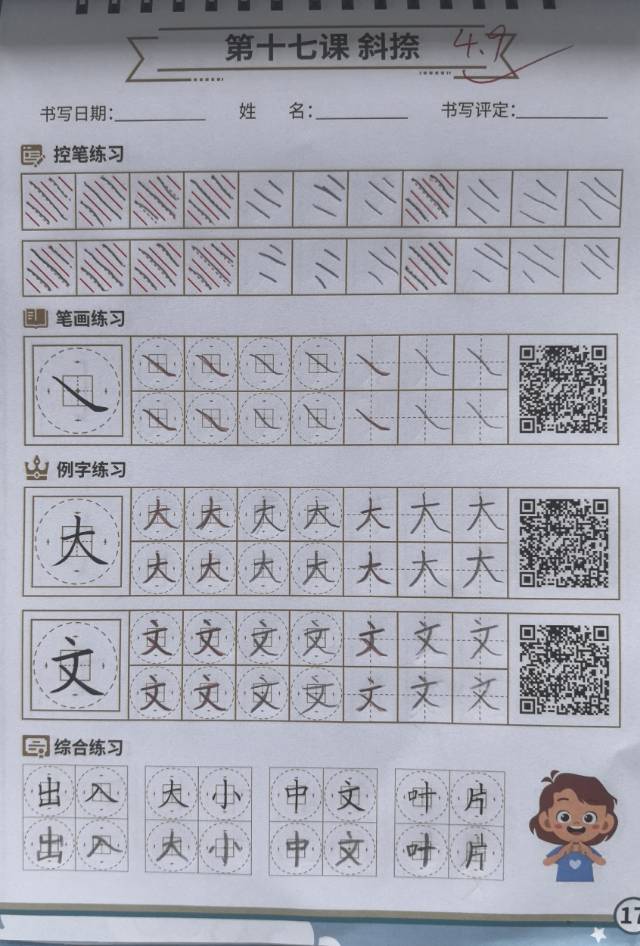 第十七课 斜捺 4.9
书写日期: 姓 名: 书写评定:
控笔练习
笔画练习
例字练习
大 大 大 大 大 大 大 大
大 大 大 大 大 大 大
文 文 文 文 文 文 文 文
文 文 文 文 文 文 文
综合练习
出 入 大 小 中 文 叶 片
出 入 大 小 中 文 叶 片
17